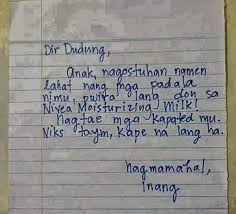 Dir Dudung,
Anak, nagostuhan namen
lahat nang mga padala
nimu, pwira lang don sa
Nivea Moisturizing Milk!
Nagtae mga kapated mu.
Niks taym, Kape na lang ha.
nagmamahal,
Inang